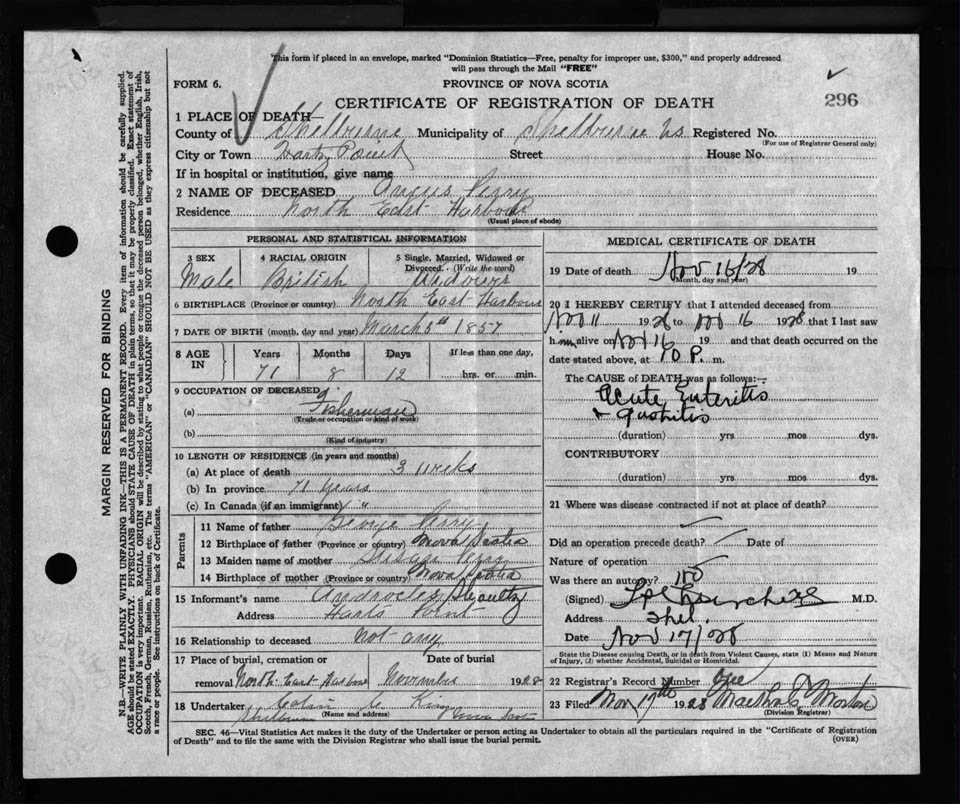 This form if placed in an envelope, marked "Dominion Statistics—Free, penalty for improper use, $300," and properly addressed
will pass through the Mail "FREE"
FORM 6.
PROVINCE OF NOVA SCOTIA
CERTIFICATE OF REGISTRATION OF DEATH
296
1 PLACE OF DEATH—
County of Shelburne Municipality of Shelburne Ns Registered No.
(For use of Registrar General only)
City or Town Hartz Point Street House No.
If in hospital or institution, give name
2 NAME OF DECEASED Angus Perry
Residence North East Harbour
(Usual place of abode)
PERSONAL AND STATISTICAL INFORMATION
3 SEX Male
4 RACIAL ORIGIN British
5 Single, Married, Widowed or Divorced.. (Write the word) Widower
6 BIRTHPLACE (Province or country) North East Harbour
7 DATE OF BIRTH (month, day and year) March 5th 1857
8 AGE IN
Years Months Days If less than one day,
71 8 12 hrs. or min.
9 OCCUPATION OF DECEASED
(a) Fisherman
(Trade or occupation or kind of work)
(b)
(Kind of industry)
10 LENGTH OF RESIDENCE (in years and months)
(a) At place of death 3 weeks
(b) In province 71 years
(c) In Canada (if an immigrant) " "
Parents
11 Name of father George Perry
12 Birthplace of father (Province or country) Nova Scotia
13 Maiden name of mother Perry
14 Birthplace of mother (Province or country) Nova Scotia
15 Informant's name Androcles
Address Harts Point
16 Relationship to deceased Not any
17 Place of burial, cremation or removal North East Harbour
Date of burial November 1928
18 Undertaker Colin C King
Shelburne Nova Scotia
(Name and address)
MEDICAL CERTIFICATE OF DEATH
19 Date of death Nov 16/28 19
(Month, day and year)
20 I HEREBY CERTIFY that I attended deceased from
Nov 11 1928 to Nov 16 1928 that I last saw
him alive on Nov 16 19 and that death occurred on the
date stated above, at 10 P. m.
The CAUSE of DEATH was as follows:
Acute Enteritis
& Gastritis
(duration) yrs mos dys.
CONTRIBUTORY
(duration) yrs mos dys.
21 Where was disease contracted if not at place of death?
Did an operation precede death? Date of
Nature of operation
Was there an autopsy? no
(Signed) M.D.
Address Shel.
Date Nov 17/28
State the Disease causing Death, or in death from Violent Causes, state (1) Means and Nature of Injury, (2) whether Accidental, Suicidal or Homicidal.
22 Registrar's Record Number
23 Filed Nov 17th 1928 Martha C. Morton
(Division Registrar)
SEC. 46—Vital Statistics Act makes it the duty of the Undertaker or person acting as Undertaker to obtain all the particulars required in the "Certificate of Registration
of Death" and to file the same with the Division Registrar who shall issue the burial permit.
(OVER)
MARGIN RESERVED FOR BINDING
N.B.—WRITE PLAINLY WITH UNFADING INK—THIS IS A PERMANENT RECORD. Every item of information should be carefully supplied.
AGE should be stated EXACTLY. PHYSICIANS should STATE CAUSE OF DEATH in plain terms, so that it may be properly classified. Exact statement of
OCCUPATION is very important. RACIAL ORIGIN will be described by stating to what people or tongue the deceased person belonged, whether English, Irish,
Scotch, French, German, Russian, Ruthenian, etc. The terms "AMERICAN" or "CANADIAN" SHOULD NOT BE USED as they express citizenship but not
a race or people. See instructions on back of Certificate.